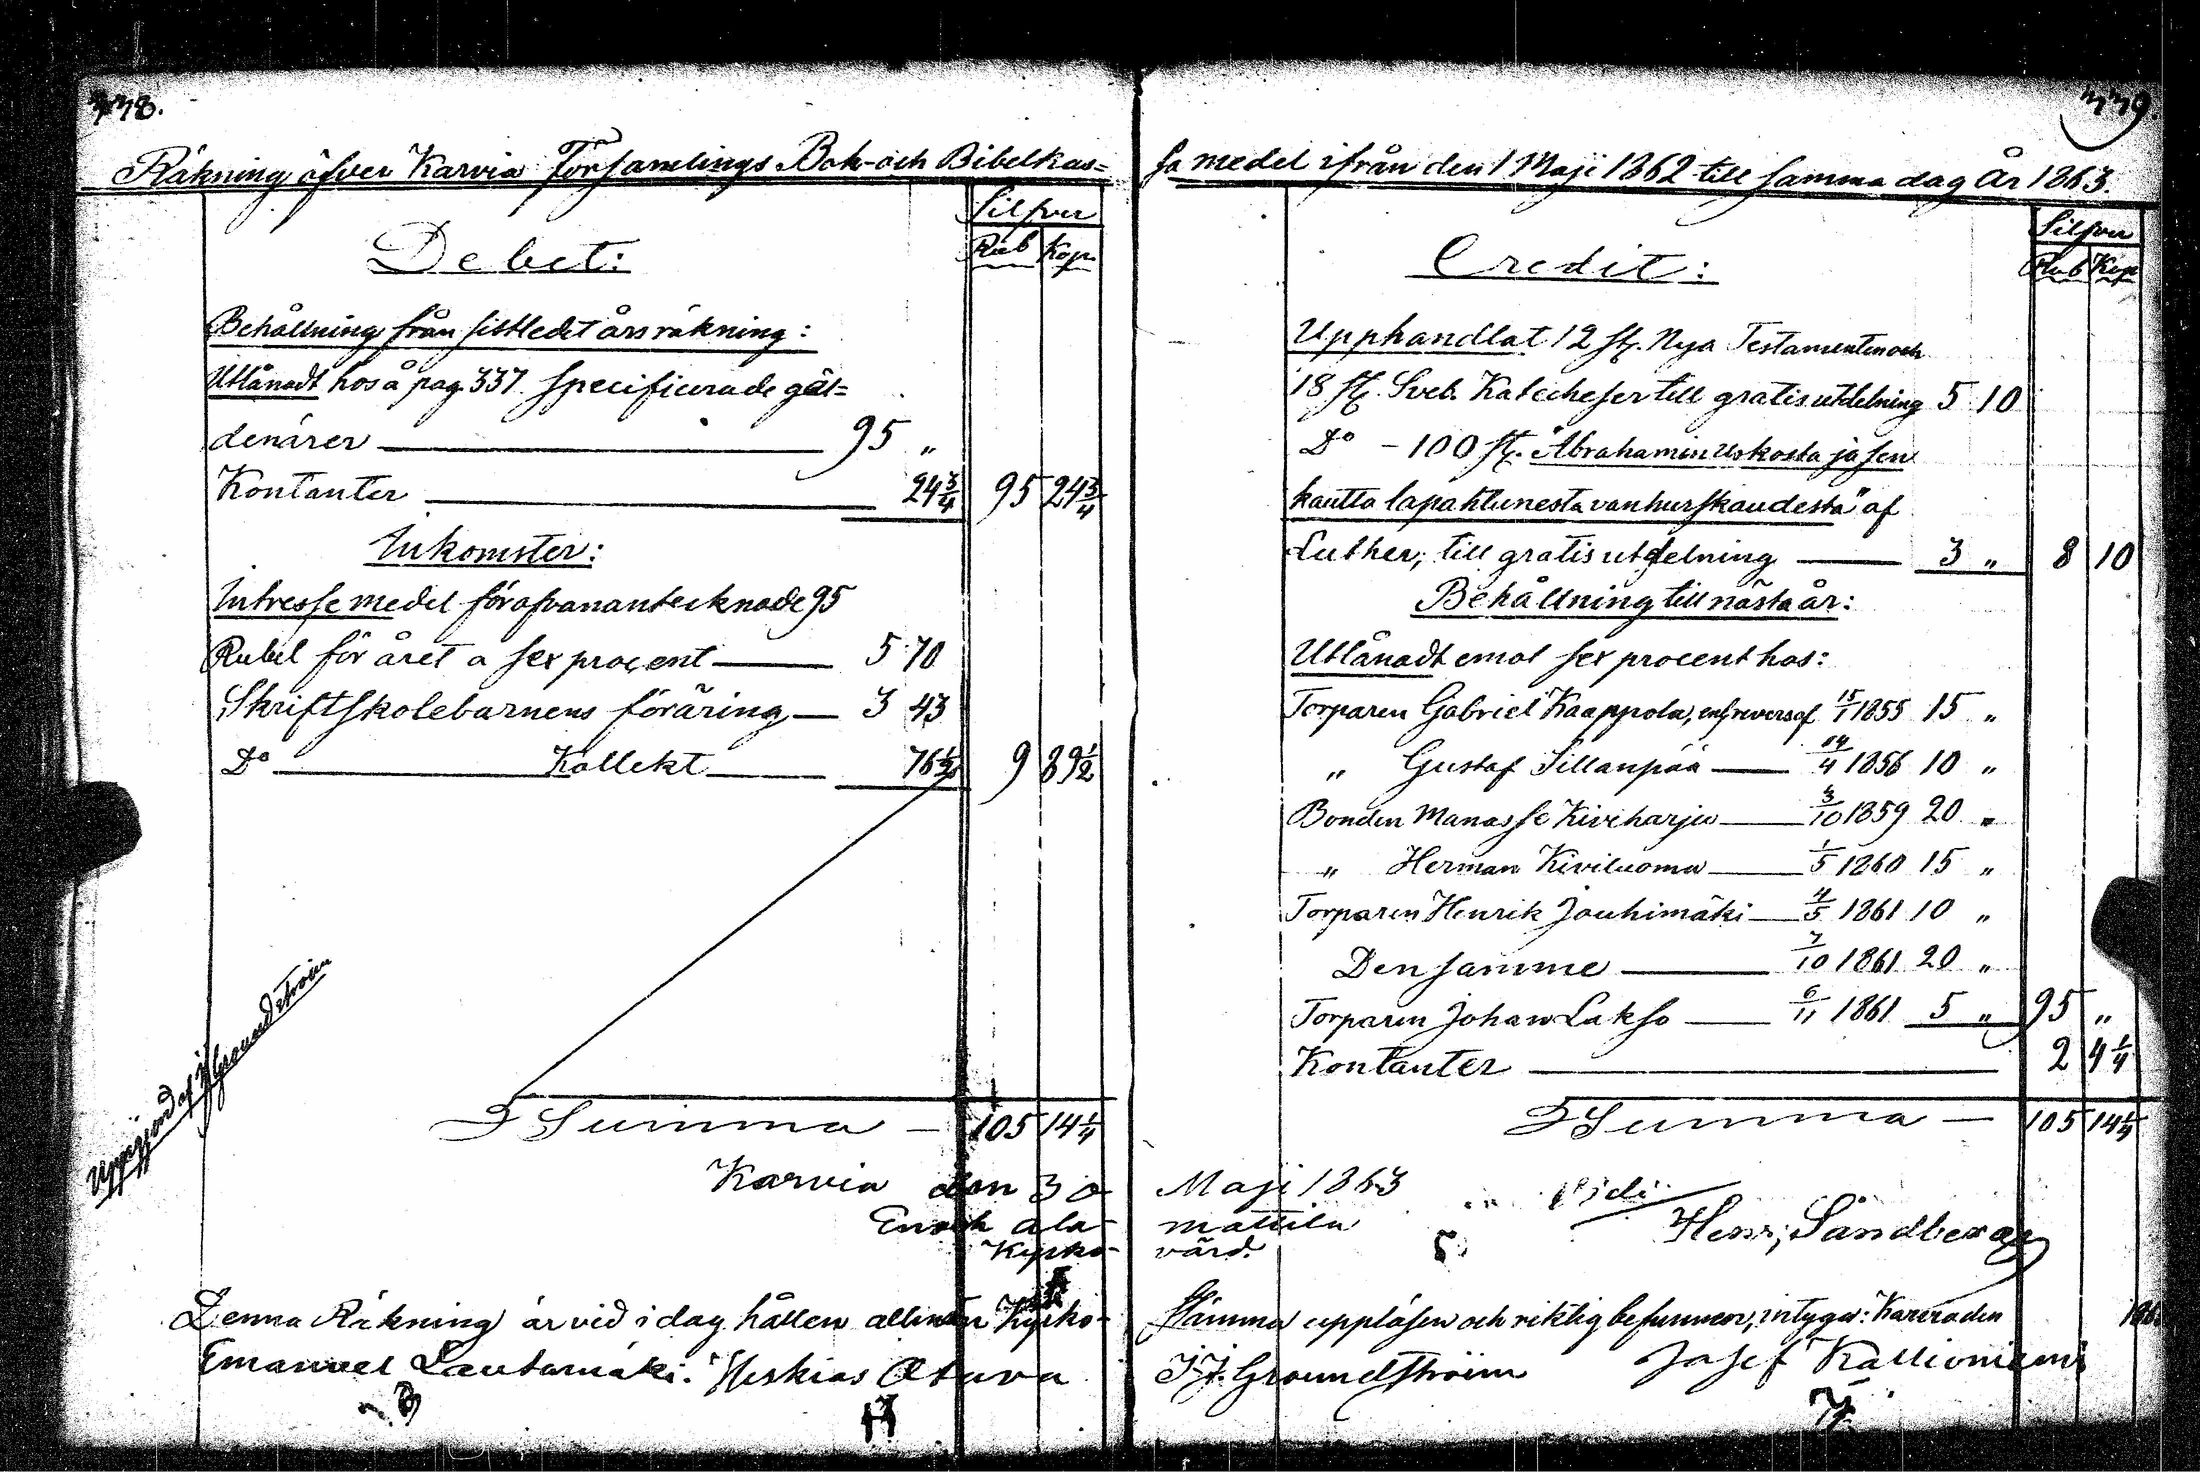 338.
Räkning öfver Karvia Församlings Bok- och Bibelkas=
Silfver
Debet:
Rub Kop
Behållning från sistledet årsräkning:
Utlånadt hos å pag. 337 specificerade gäl=
denärer — 95 „
Kontanter — 24¾ 95 24¾
Inkomster:
Intresse medel för ofvanantecknade 95
Rubel för året a sex procent — 5 70
Skriftskolebarnens föräring — 3 43
Do — Kollekt — 76½ 9 89½
Summa — 105 14¼
Uppgjord af Groundstroem
Karvia den 30
Enoch Ala-
Kyrko-
Denna Räkning är vid i dag hållen allmän Kyrko-
Emanuel Lautamäki. Heskias Otava
339.
sa medel ifrån den 1 Maji 1862 till samma dag År 1863.
Silfver
Credit:
Rub Kop
Upphandlat 12 st. Nya Testamenten och
18 st. Sveb. Katecheser till gratis utdelning 5 10
Do - 100 st. "Abrahamin Uskosta ja sen
kautta lapahtunesta vanhurskaudesta" af
Luther, till gratis utdelning — 3 „ 8 10
Behållning till nästa år:
Utlånadt emot sex procent hos:
Torparen Gabriel Kaappola, enl. revers af 15/1 1855 15 „
„ Gustaf Sillanpää — 14/4 1856 10 „
Bonden Manasse Kiviharju — 3/10 1859 20 „
„ Herman Kiviluoma — 1/5 1860 15 „
Torparen Henrik Jouhimäki — 4/5 1861 10 „
Den samme — 7/10 1861 20 „
Torparen Johan Lakso — 6/11 1861 5 „ 95 „
Kontanter — 2 4¼
Summa — 105 14¼
Maji 1863
Vidi
mattila
Henr. Sandberg
värd.
stämma uppläsen och riktig befunnen, intyga: Karvia den
J. J. Groundstroem Josef Kallioniemi